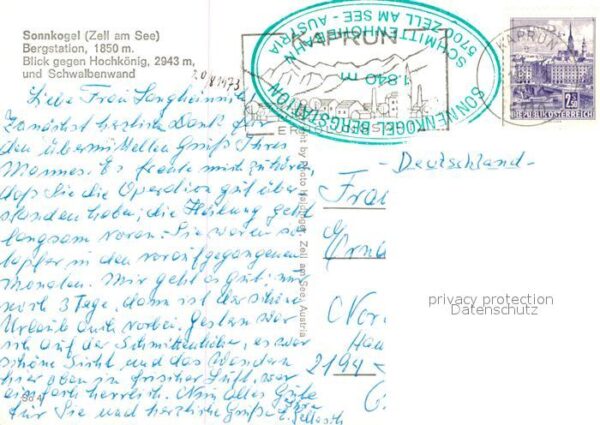 Sonnkogel (Zell am See)
Bergstation, 1850 m.
Blick gegen Hochkönig, 2943 m,
und Schwalbenwand
KAPRUN
SCHMITTENHÖHEBAHN
5700 ZELL AM SEE - AUSTRIA
1.840 m
SONNKOGEL-BERGSTATION
KAPRUN
2.50
REPUBLIK ÖSTERREICH
Liebe Frau
Zunächst herzlich Dank für
den übermittelten Gruß Ihres
Mannes. Es freute mich zu hören,
daß Sie die Operation gut über
standen haben; die Heilung geht
langsam voran. Sie waren so
tapfer in den vorausgegangenen
Monaten. Mir geht es gut; nur
noch 3 Tage, dann ist der schöne
Urlaub auch vorbei. Gestern war
ich auf der Schmittenhöhe, es war
schöne Sicht und das Wandern
hier oben in frischer Luft, war
einfach herrlich. Nun alles Gute
für Sie und herzliche Grüße Ihre
Zell am See, Austria
- Deutschland -
Frau
2194
privacy protection
Datenschutz